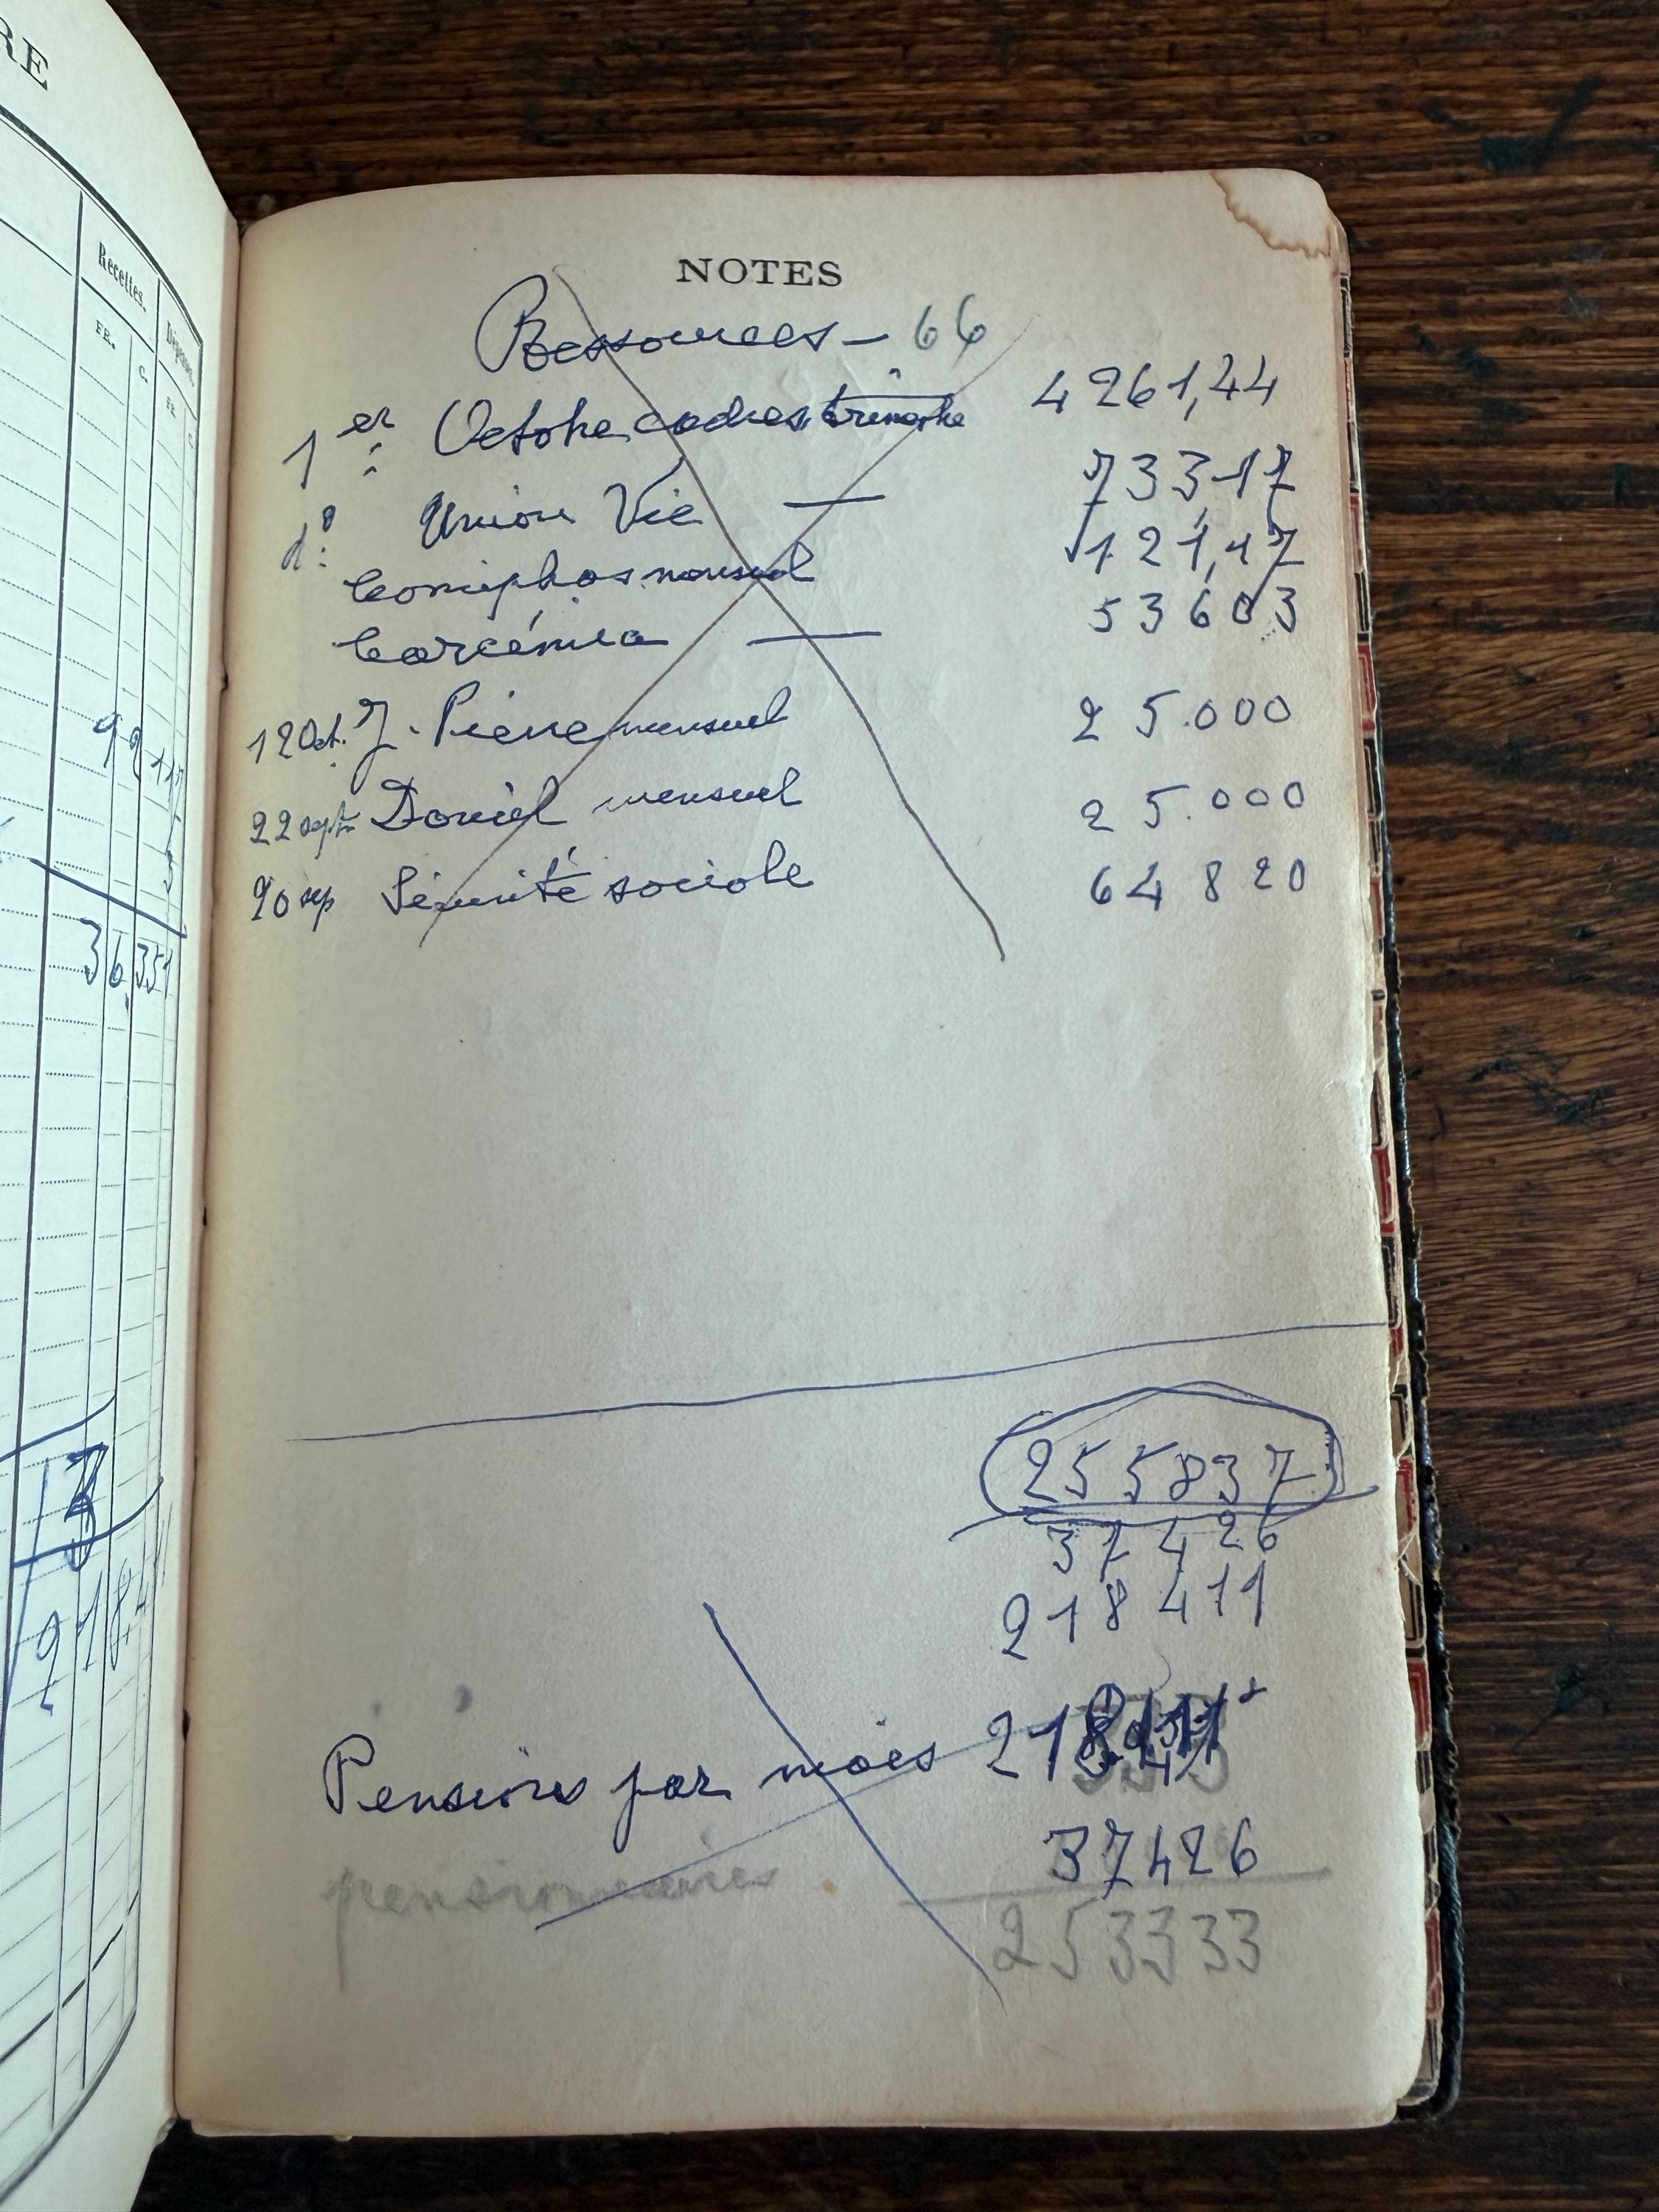 RE
Recettes.
Dépenses.
FR.
C.
FR.
36,351
13
NOTES
Ressources - 66
1er Octobre cadres trimestre 4261,44
d° Union Vie — 733,17
mensuel 121,17
— 53603
12 Oct. J. Pierre mensuel 25.000
22 sept Daniel mensuel 25.000
20 sep Sécurité sociale 64 820
255837
37426
218411
Pensions par mois 218411
37426
pensionnaires
253333